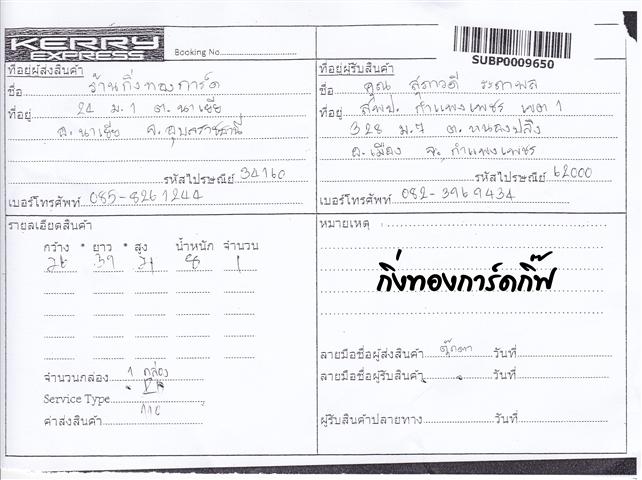 KERRY
EXPRESS
Booking No.
SUBP0009650
ที่อยู่ผู้ส่งสินค้า
ชื่อ ร้านกิ่งทองการ์ด
ที่อยู่ 24 ม.1 ต.นาเยีย
อ.นาเยีย จ.อุบลราชธานี
รหัสไปรษณีย์ 34160
เบอร์โทรศัพท์ 085-8261244
ที่อยู่ผู้รับสินค้า
ชื่อ คุณ สุภาวดี
ที่อยู่ สพป. กำแพงเพชร เขต 1
328 ม.7 ต.หนองปลิง
อ.เมือง จ.กำแพงเพชร
รหัสไปรษณีย์ 62000
เบอร์โทรศัพท์ 082-3969434
รายละเอียดสินค้า
กว้าง * ยาว * สูง น้ำหนัก จำนวน
39 8 1
จำนวนกล่อง 1 กล่อง
Service Type
ค่าส่งสินค้า
หมายเหตุ
กิ่งทองการ์ดกิ๊ฟ
ลายมือชื่อผู้ส่งสินค้า ตุ๊กตา วันที่
ลายมือชื่อผู้รับสินค้า วันที่
ผู้รับสินค้าปลายทาง วันที่